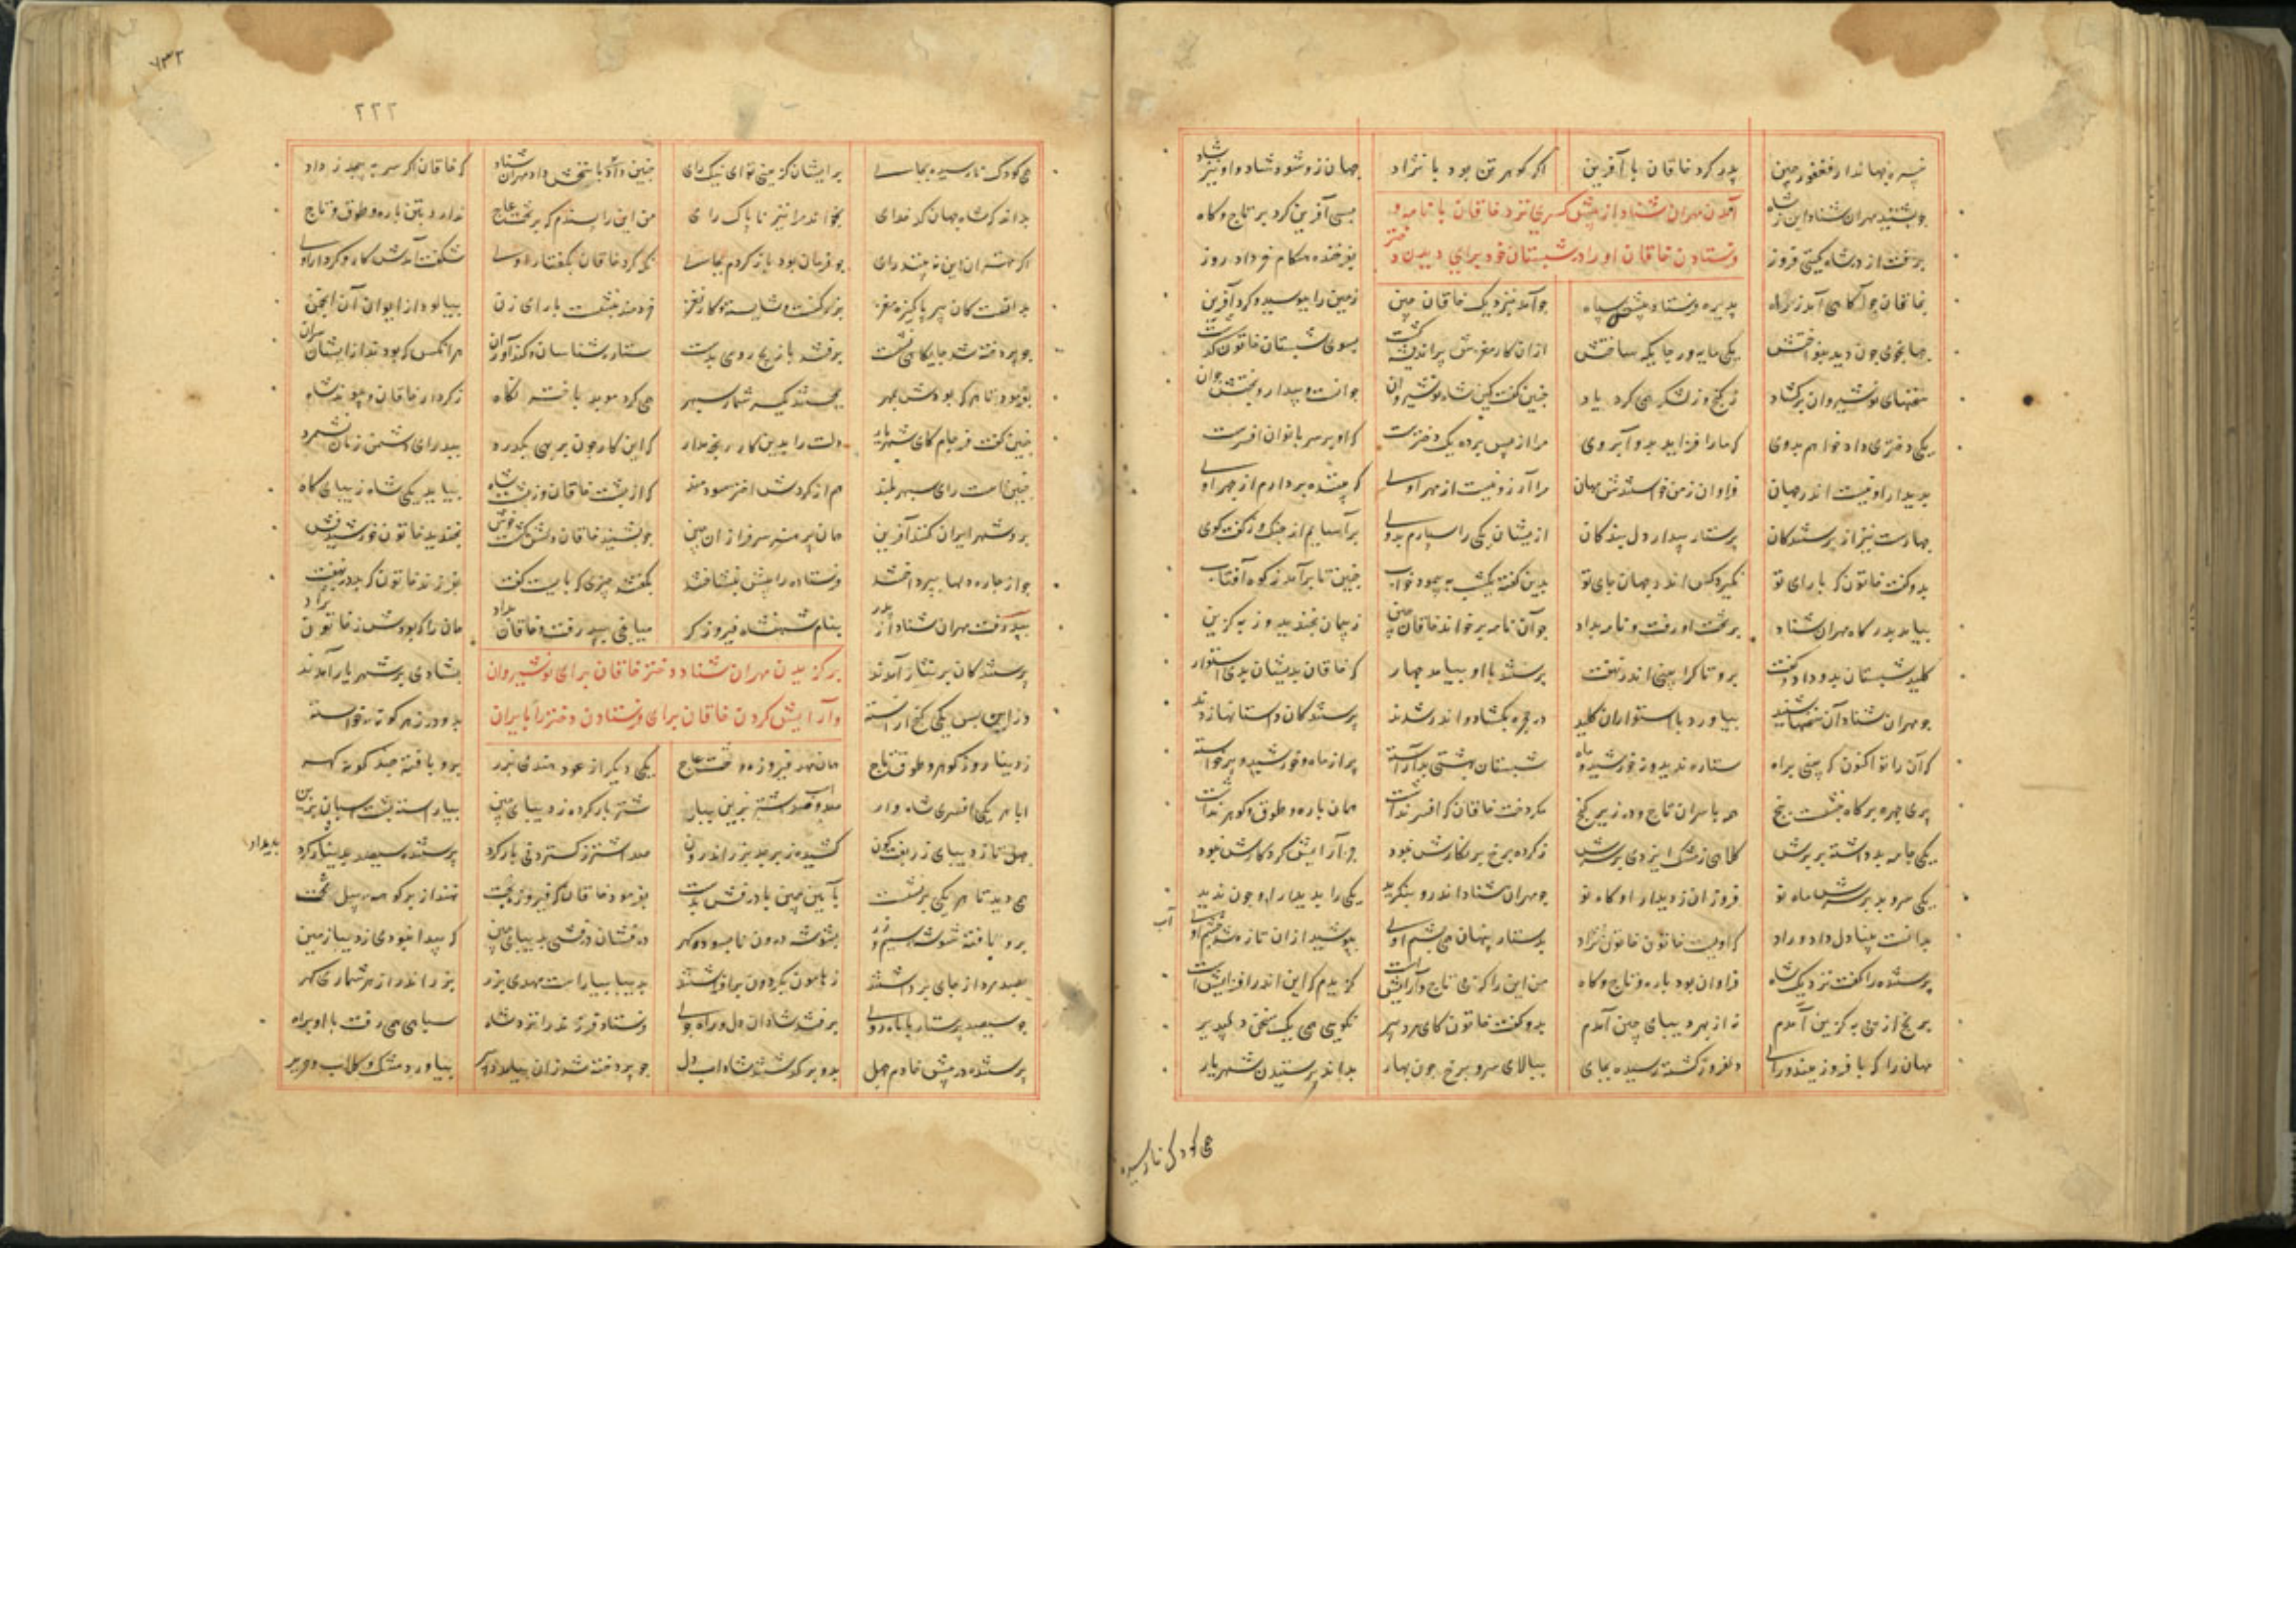 نبیره جهاندار فغفور چین پدر کرد خاقان با آفرین اگر گوهر تن بود با نژاد جهان زو شود شاد و او نیز شاد
چو بشنید مهران شتاد این ز شاه بسی آفرین کرد بر تاج و گاه
آمدن مهران شتاد از پیش کسری نزد خاقان با نامه و
برفت از در شاه گیتی فروز بفرخنده هنگام خرداد روز
فرستادن خاقان او را در شبستان خود برای دیدن دختر
بخاقان چو آگاهی آمد ز راه پذیره فرستاد پیش سپاه چو آمد بنزدیک خاقان چین زمین را ببوسید و کرد آفرین
جهانجوی چون دید بنواختش یکی مایه ور جایگه ساختش ازان کار مغزش پر اندیشه گشت بسوی شبستان خاتون گذشت
سخنهای نوشیروان برگشاد ز گنج و ز لشکر همی کرد یاد چنین گفت کین شاه نوشیروان جوانست و بیدار و بختش جوان
یکی دختری داد خواهم بدوی که ما را فزاید بدو آبروی مرا از پس پرده یک دخترست که او بر سر بانوان افسرست
بدیدار او نیست اندر جهان فراوان ز من خواستندش مهان مرا آرزو نیست از مهر اوی که بیننده بردارم از چهر اوی
چهارست نیز از پرستندگان پرستار بیدار دل بندگان ازیشان یکی را سپارم بدوی برآسایم از جنگ وز گفت و گوی
بدو گفت خاتون که با رای تو نگیرد کس اندر جهان جای تو بدین گفته یکشب بپیمود خواب چنین تا برآمد ز کوه آفتاب
بیامد بدرگاه مهران شتاد بر تخت او رفت و نامه بداد چو آن نامه برخواند خاقان چین ز پیمان بخندید وز به گزین
کلید شبستان بدو داد و گفت برو تا کرا بینی اندر نهفت پرستنده با او بیامد چهار که خاقان بدیشان بدی استوار
چو مهران شتاد آن سخنها شنید بیاورد با استواران کلید در حجره بگشاد و اندر شدند پرستندگان داستانها زدند
که آن را تو اکنون که بینی براه ستاره ندید و نه خورشید و ماه شبستان بهشتی بد آراسته پر از ماه و خورشید و پر خواسته
پری چهره بر گاه بنشست پنج همه با سران تاج و در زیر گنج مگر دخت خاقان که افسر نداشت همان یاره و طوق و گوهر نداشت
یکی جامه بد داشته بر برش کلاهی ز مشک ایزدی بر سرش ز گرده برخ بر نگارش نبود جز آرایش کردگارش نبود
یکی سرو بد بر سرش ماه نو فروزان ز دیدار او گاه نو چو مهران شتاد اندرو بنگرید یکی را بدیدار او چون ندید
بدانست بینا دل داد و راد که اویست خاتون خاتون نژاد بدستار پنهان همی چشم اوی بپوشید ازان تازه شد خشم اوی
پرستنده را گفت نزدیک شاه فراوان بود یاره و تاج و گاه من این را که بی تاج و آرایش است گزیدم که این اندر افزایش است
برنج از پی به گزین آمدم نه از بهر دیبای چین آمدم بدو گفت خاتون که ای مرد پیر نگویی همی یک سخن دلپذیر
مهان را که با فر و زیبند و رای دلفروز گشته رسیده بجای ببالای سرو و برخ چون بهار بداند پرستیدن شهریار
همی کودک نارسیده
۷۳۲
۲۲۲
همی کودک نارسیده بجای بر ایشان گزینی تو ای نیک رای چنین داد پاسخ مهران شتاد که خاقان اگر سر بپیچد ز داد
بداند که شاه جهان کدخدای بخواند مرا نیز ناپاک رای من این را پسندم که بر تخت عاج ندارد بتن یاره و طوق و تاج
اگر مهتران این نه بینند رای چو فرمان بود بازگردم بجای نگه کرد خاقان بگفتار اوی شگفت آمدش کار و کردار اوی
بدانست کان پیر پاکیزه مغز بزرگست و شایسته کار نغز خردمند بنشست با رای زن بپالود از ایوان آن انجمن
چو پردخته شد جایگاه نشست برفتند با زیج رومی بدست ستاره شناسان و کندآوران هر آنکس که بودند از ایشان سران
بفرمود تا هر که بودش بمهر بجستند یکسر شمار سپهر همی کرد موبد باختر نگاه ز کردار خاقان و پیوند شاه
چنین گفت فرجام کای شهریار دلت را بدین کار رنجه مدار که این کار جون بر بهی بگذرد ببد رای دشمن زمان نشمرد
چنین است رای سپهر بلند هم از گردش اختر سودمند که از پشت خاقان و ز پشت شاه بیاید یکی شاه زیبای گاه
برو شهر ایران کنند آفرین همان پر هنر سرفرازان چین چو بشنید خاقان دلش گشت خوش بخندید خاتون خورشیدفش
چو از چاره دلها بپرداختند فرستاده را پیش بنشاختند بگفتند چیزی که بایست گفت ز فرزند خاتون که بد در نهفت
بپذرفت مهران شتاد از پدر بنام شهنشاه فیروزگر میانجی بپذرفت و خاقان بداد همان را که بودش ز خاتون نژاد
پرستندگان بر نثار آمدند بشادی بر شهریار آمدند
برگزیدن مهران شتاد دختر خاقان برای نوشیروان
وزان پس یکی گنج آراسته بدو در ز هر گونه خواسته
و آرایش کردن خاقان برای فرستادن دختر را بایران
ز دینار وز گوهر و طوق و تاج همان مهر فیروزه و تخت عاج یکی دیگر از عود هندی بزر برو بافته چند گونه گهر
ابا هر یکی افسری شاهوار شتر بار کرده ز دیبای چین بیاراسته پشت اسپان بزین
چهل تا ز دیبای زربفت گون کشیده زبرجد بزر اندرون صد اشتر ز گستردنی بار کرد پرستنده سیصد پدیدار کرد
همی دید تا هر یکی برنشست بآیین چین با درفشی بدست بفرمود خاقان فیروزبخت نهند از بر کوهه پیل تخت
برو بافته شوشه سیم و زر بشوشه درون نابسوده گهر درفشان درفشی بدیبای چین که پیدا نبودی ز دیبا زمین
بصد مرد از جای برداشتند ز هامون بگردون برافراشتند بدیبا بیاراست مهدی بزر بزر اندر از هر شماری گهر
چو سیصد پرستار با ماه روی برفتند شادان دل و راه جوی فرستاد فرزند را نزد شاه سپاهی همی رفت با او براه
پرستنده در پیش خادم چهل بدو برگذشتند شاداب دل چو پردخته شد زان بیامد دبیر بیاورد مشک و گلاب و حریر